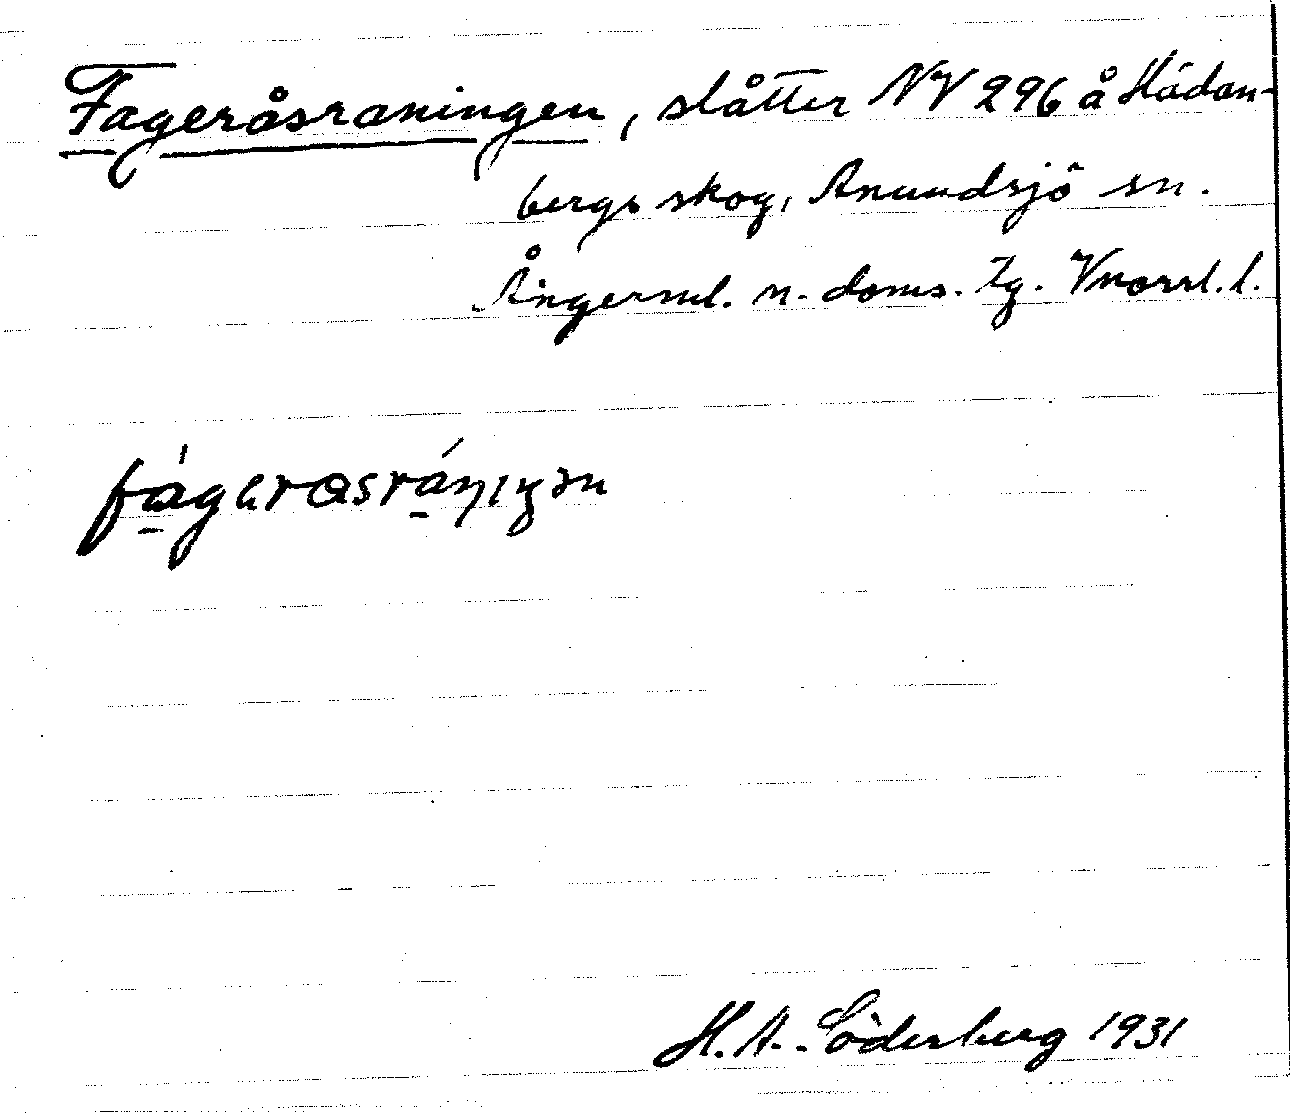 Fageråsraningen, slåtter NV 296 å Hädan-
bergs skog, Anundsjö sn.
Ångerml. n. doms. tg. Vnorrl. l.
H. A. Söderberg 1931